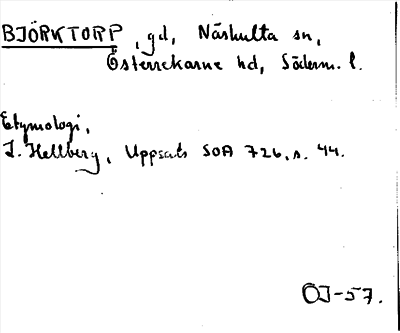 BJÖRKTORP, gd, Näshulta sn,
Österrekarne hd, Söderm. l.
Etymologi,
I. Hellberg, Uppsats SOA 726, s. 44.
ÖJ-57.